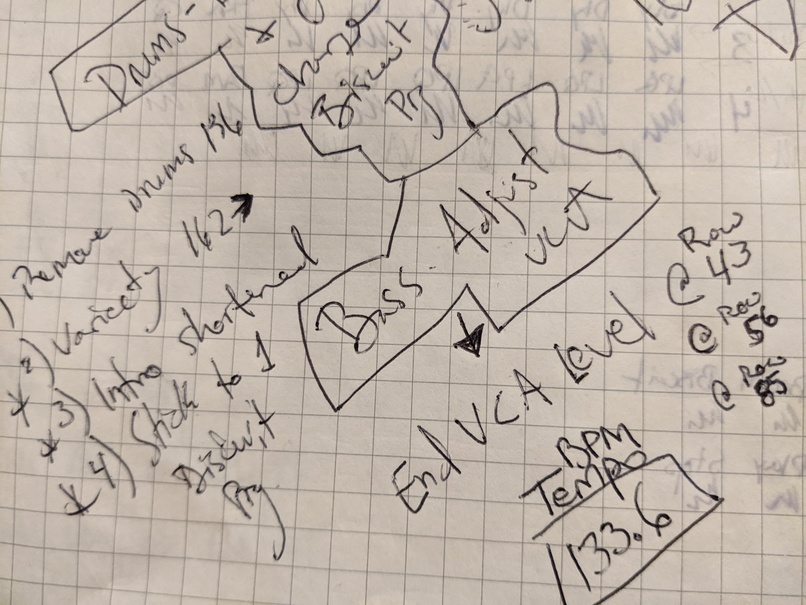 Drums-
* Change
Biscuit
Pg
) Remove Drums 136
* 2) Variety 162→
* 3) Intro shortened
* 4) Stick to 1
Biscuit
Pg
Bass - Adjust
VCA
End VCA Level
@ Row 43
@ Row 56
@ Row
BPM
Tempo
133.6